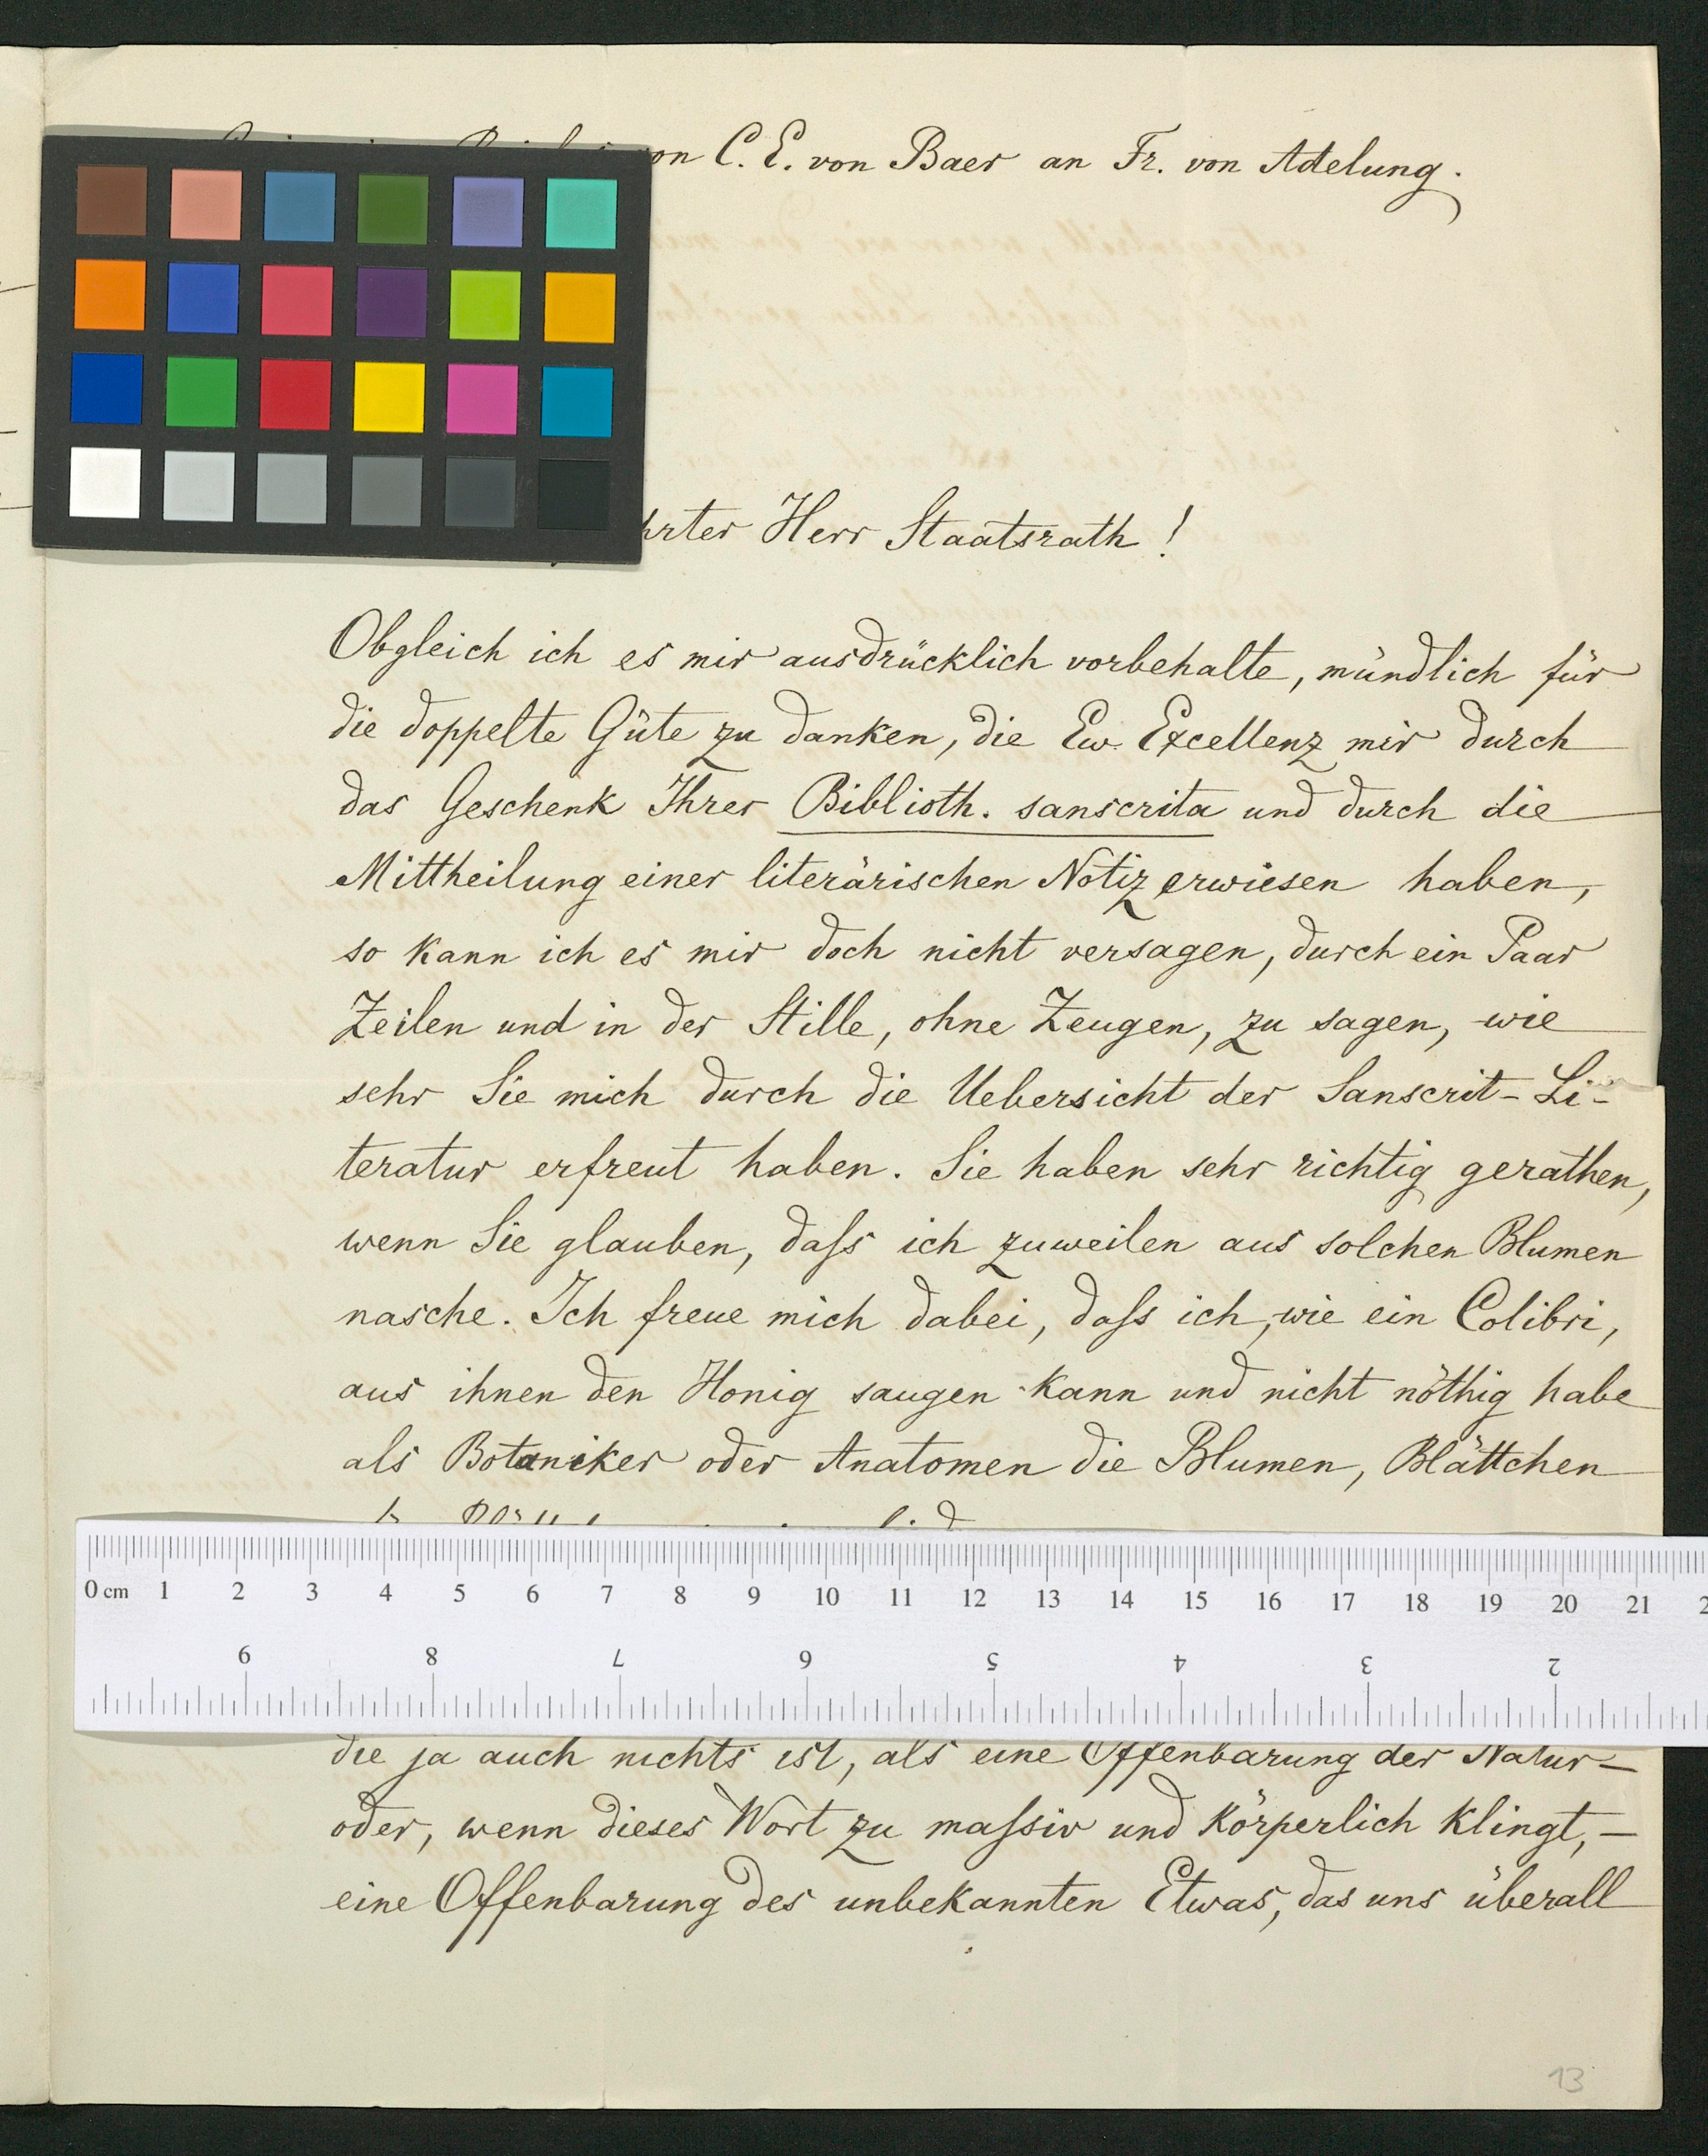 C. E. von Baer an Fr. von Adelung.
Herr Staatsrath!
Obgleich ich es mir ausdrücklich vorbehalte, mündlich für
die doppelte Güte zu danken, die Ew. Excellenz mir durch
das Geschenk Ihrer Biblioth. sanscrita und durch die
Mittheilung einer literärischen Notiz erwiesen haben,
so kann ich es mir doch nicht versagen, durch ein Paar
Zeilen und in der Stille, ohne Zeugen, zu sagen, wie
sehr Sie mich durch die Uebersicht der Sanscrit-Li-
teratur erfreut haben. Sie haben sehr richtig gerathen,
wenn Sie glauben, daſs ich zuweilen aus solchen Blumen
nasche. Ich freue mich dabei, daſs ich, wie ein Colibri,
aus ihnen den Honig saugen kann und nicht nöthig habe
als Botaniker oder Anatomen die Blumen, Blättchen
0 cm 1 2 3 4 5 6 7 8 9 10 11 12 13 14 15 16 17 18 19 20 21
9 8 7 6 5 4 3 2
die ja auch nichts ist, als eine Offenbarung der Natur –
oder, wenn dieses Wort zu maſsiv und körperlich klingt, –
eine Offenbarung des unbekannten Etwas, das uns überall
13